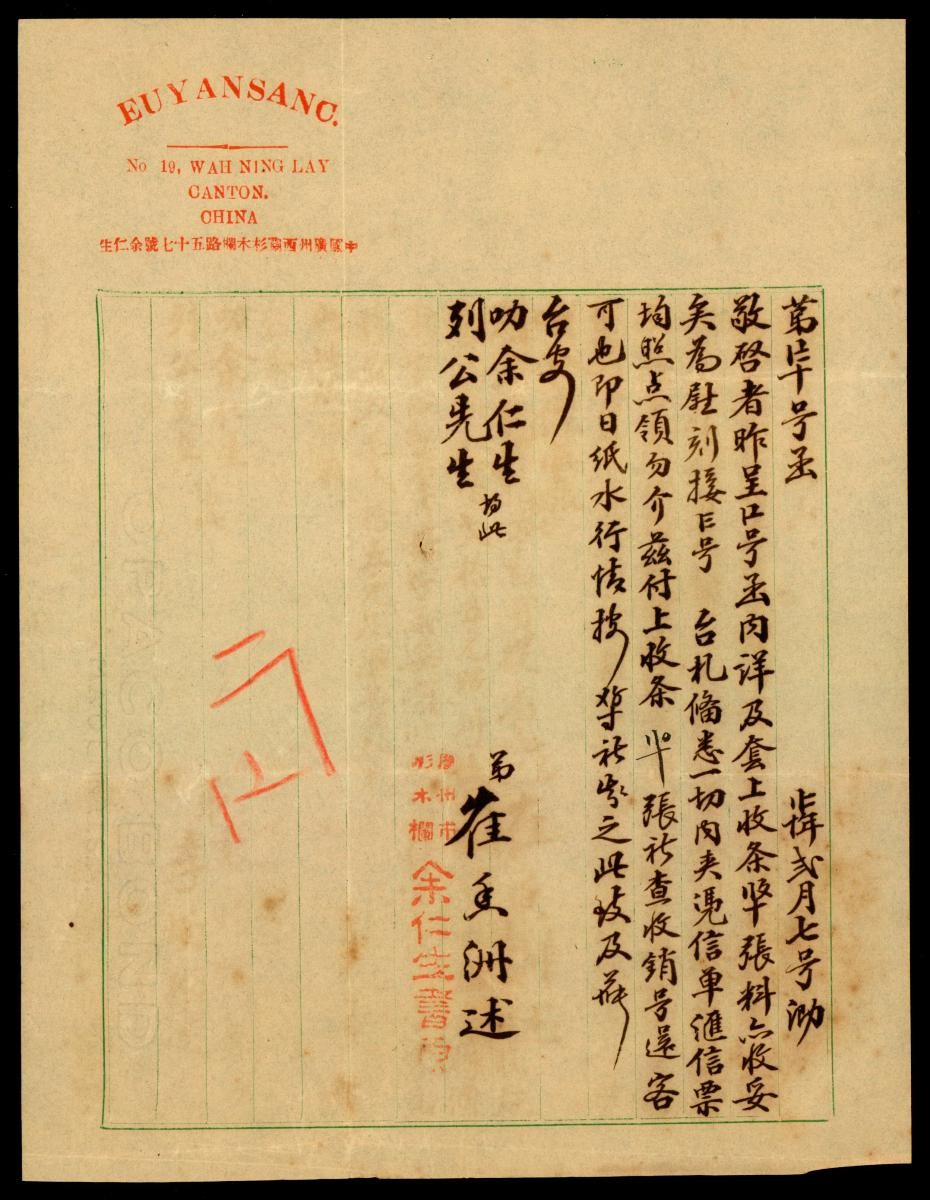 EU YAN SANG.
No 19, WAH NING LAY
CANTON.
CHINA
中國廣州西關杉木欄路五十七號余仁生
号函
弍月七号泐
敬啓者昨呈口号函內詳及套上收条張料亦收妥
矣为慰刻接号 台札俻悉一切內夹凴信单滙信票
均照点领勿介兹付上收条 張祈查收銷号還客
可也即日紙水行情按祈之此致及
台安
叻余仁生
列公先生 均此
弟崔香洲述
廣州市
杉木欄
余仁生書柬